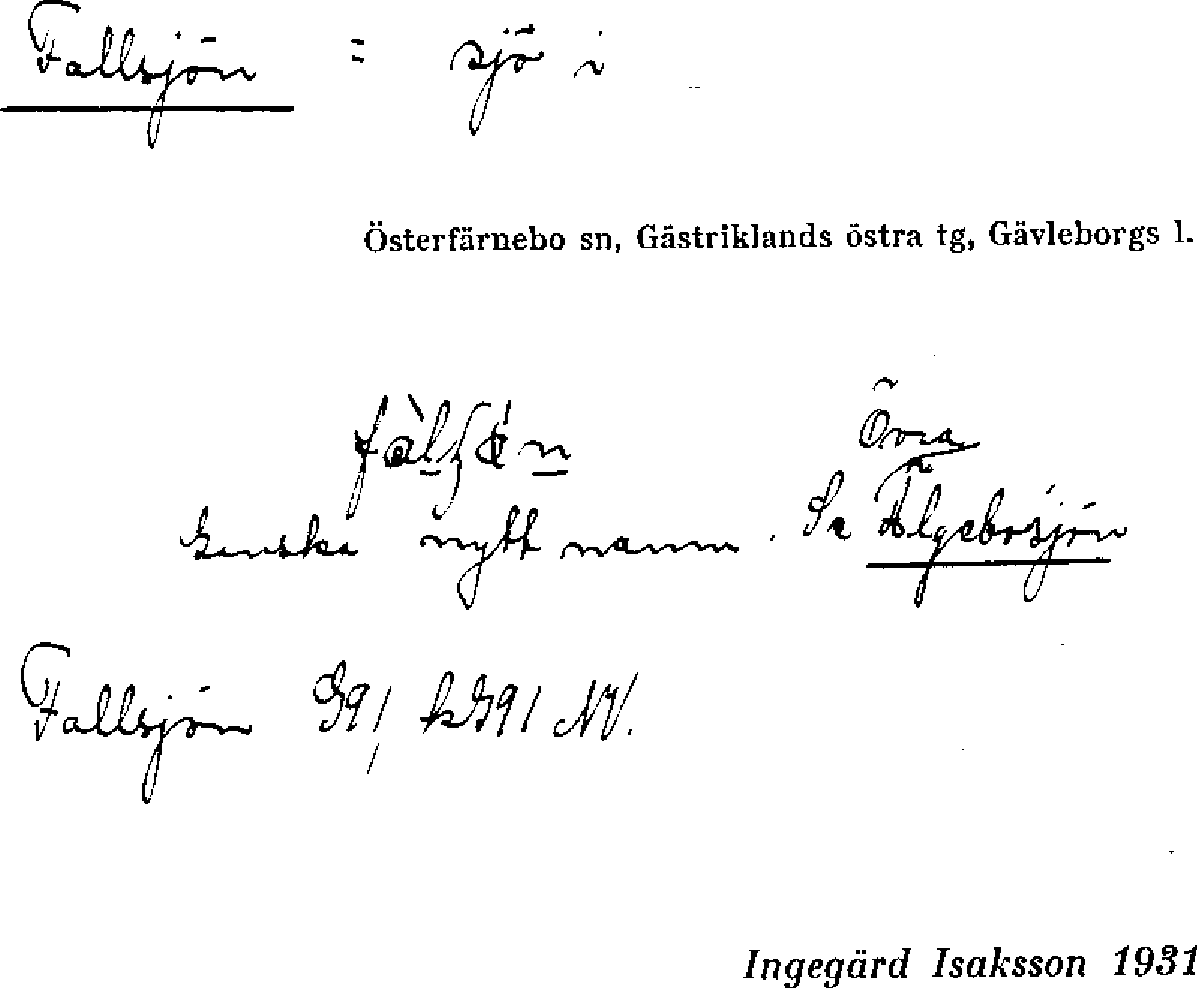 Fallsjön = sjö i
Österfärnebo sn, Gästriklands östra tg, Gävleborgs l.
Ganska nytt namn. Se Övra Älgebosjön
Fallsjön G91 kG91 NV.
Ingegärd Isaksson 1931